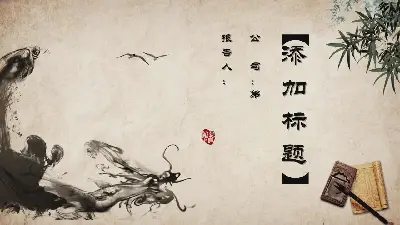 【添加标题】
公司:
报告人: